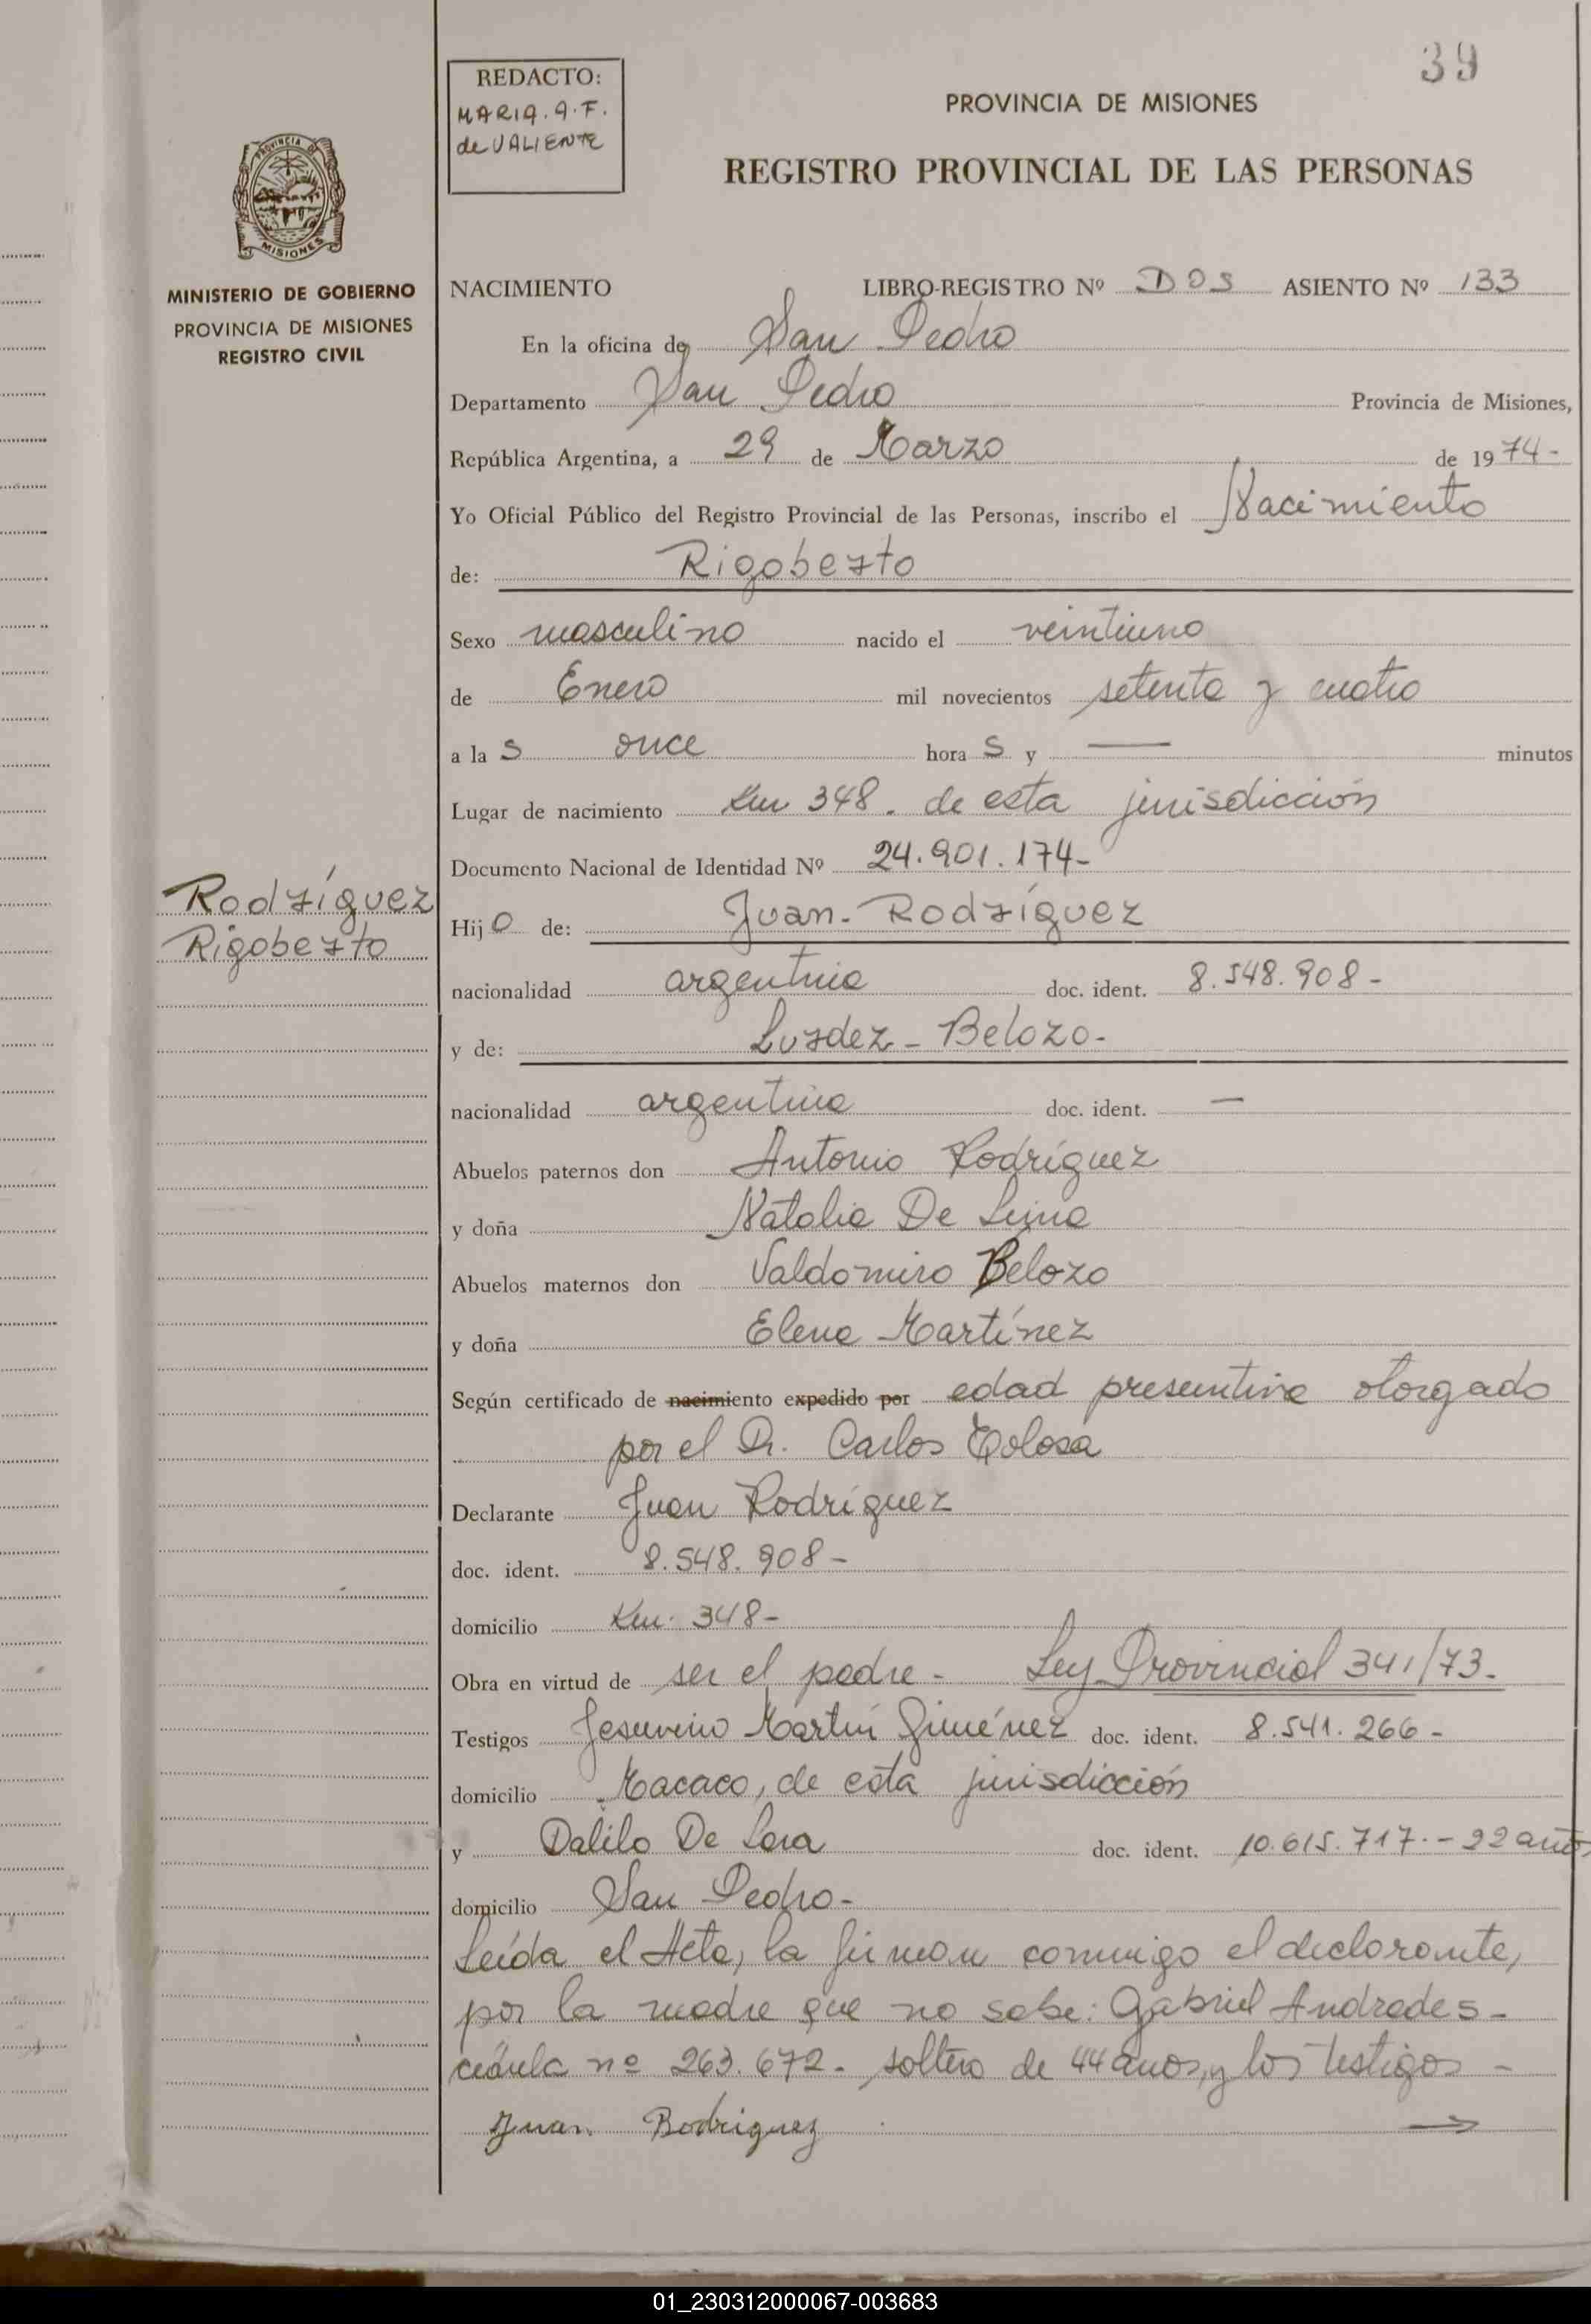 39
REDACTO:
MARIA. A. F.
de VALIENTE
PROVINCIA DE MISIONES
REGISTRO PROVINCIAL DE LAS PERSONAS
PROVINCIA DE
MISIONES
MINISTERIO DE GOBIERNO
PROVINCIA DE MISIONES
REGISTRO CIVIL
NACIMIENTO LIBRO-REGISTRO Nº DOS ASIENTO Nº 133
En la oficina de San Pedro
Departamento San Pedro Provincia de Misiones,
República Argentina, a 29 de Marzo de 1974-
Yo Oficial Público del Registro Provincial de las Personas, inscribo el Nacimiento
de: Rigoberto
Sexo masculino nacido el veintiuno
de Enero mil novecientos setenta y cuatro
a la s once hora s y — minutos
Lugar de nacimiento Km 348. de esta jurisdicción
Documento Nacional de Identidad Nº 24.901.174-
Rodríguez
Rigoberto
Hijo de: Juan- Rodríguez
nacionalidad argentina doc. ident. 8.548.908-
y de: Lurdez - Belozo-
nacionalidad argentina doc. ident. —
Abuelos paternos don Antonio Rodríguez
y doña Natalia De Lima
Abuelos maternos don Valdomiro Belozo
y doña Elena Martínez
Según certificado de nacimiento expedido por edad presuntiva otorgado
por el Dr. Carlos Tolosa
Declarante Juan Rodríguez
doc. ident. 8.548.908-
domicilio Km. 348-
Obra en virtud de ser el padre - Ley Provincial 341/73.
Testigos Jesuvino Martín Giménez doc. ident. 8.541.266-
domicilio Macaco, de esta jurisdicción
y Dalilo De Lara doc. ident. 10.615.717.- 22 años
domicilio San Pedro-
Leída el Acta, la firman conmigo el declarante,
por la madre que no sabe: Gabriel Andrades-
cédula nº 263.672- soltero de 44 años, y los testigos -
Juan Rodriguez →
01_230312000067-003683